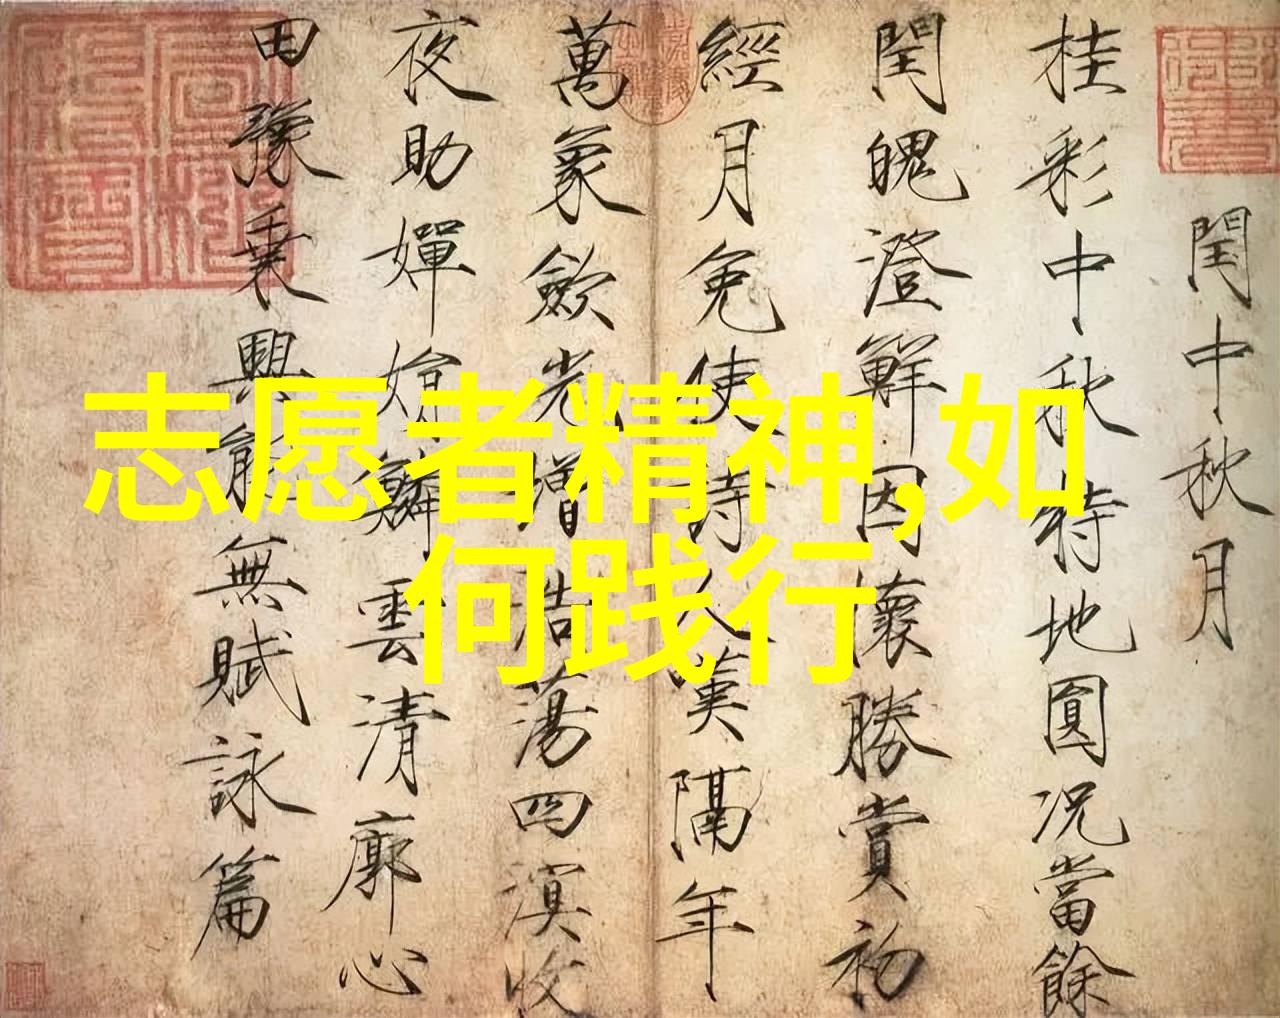 志愿者精神,如
何践行
閏中秋月
桂彩中秋特地圓況當餘
閏魄澄鮮因懷勝賞初
經月免使詩人歎隔年
萬象斂光增浩蕩四溟收
夜助嬋娟鱗雲清廓心
田豫乗興能無賦詠篇